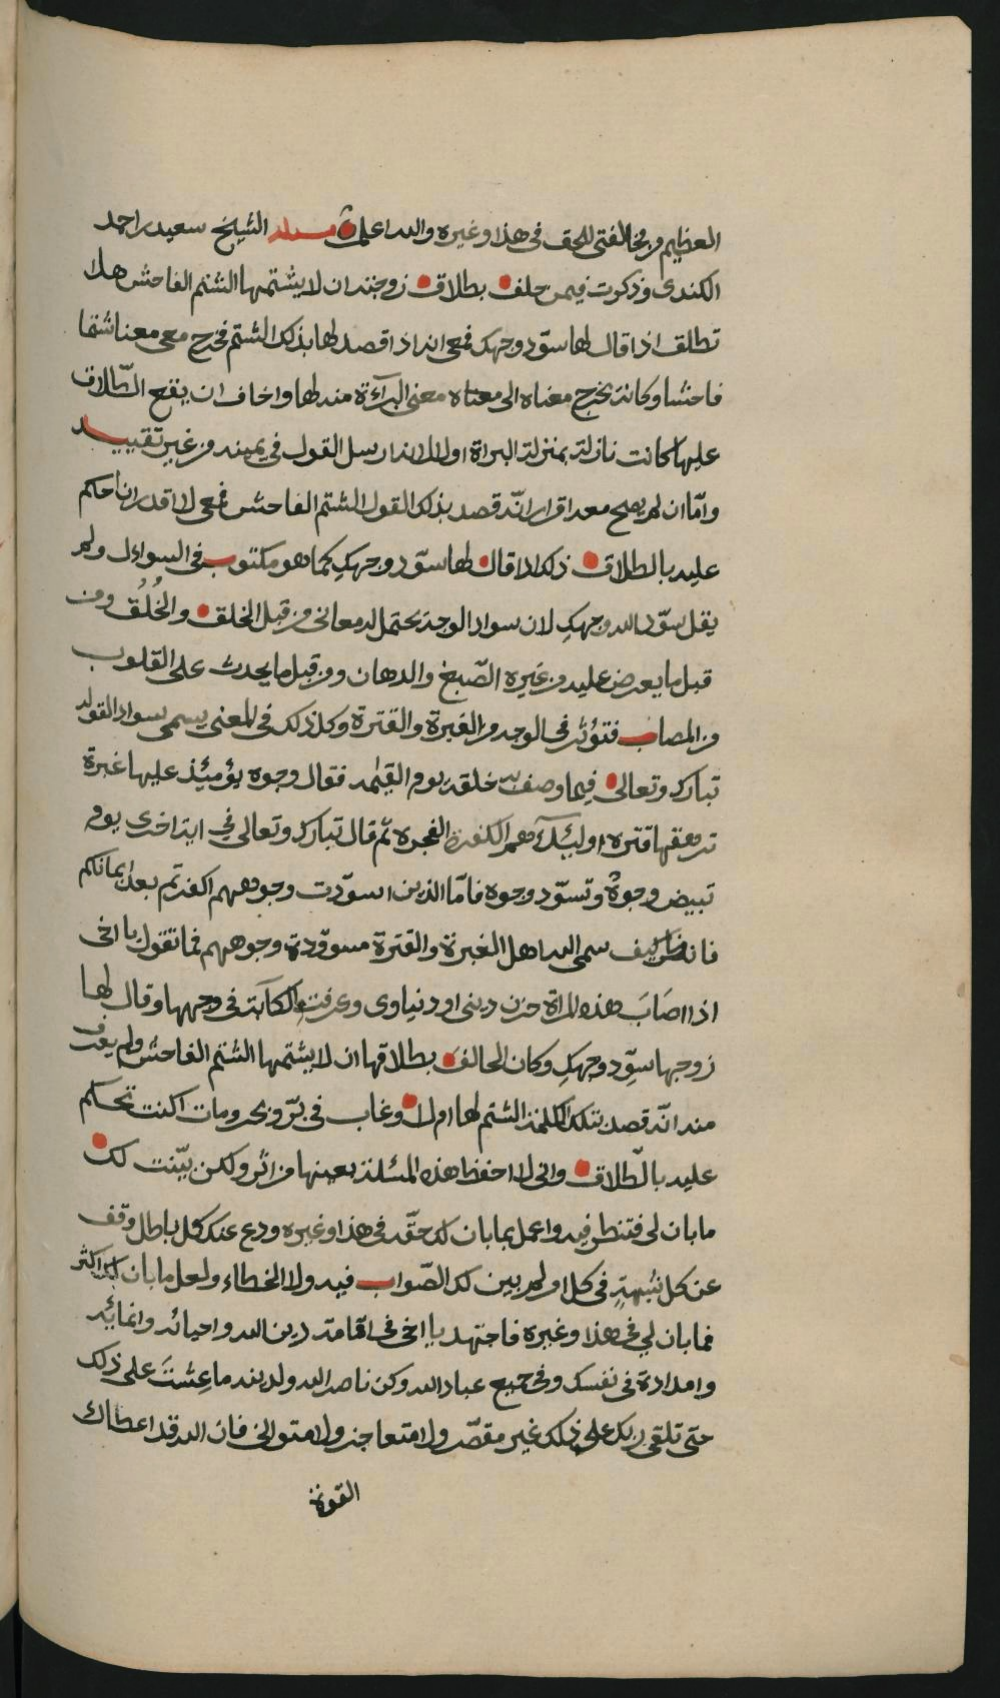 العظيم وبمخالفتي للحق في هذا وغيره والله اعلم مسئله الشيخ سعيد بن احمد
الكندي وذكرت فيمن حلف بطلاق زوجته ان لا يشتمها الشتم الفاحش هل
تطلق اذا قال لها سوّد وجهك فمعي انه اذا قصد لها بذلك الشتم فخرج معي معنا شتما
فاحشا وكانه يخرج معناه الى معناه معنى البرآءة منه لها واخاف ان يقع الطّلاق
عليها كانت نازلة بمنزلة البراة او لا لانه ارسل القول في يمينه من غير تقييد
وامّا ان لم يصح معه اقرار انّه قصد بذلك القول الشتم الفاحش فمعي لا اقدر ان احكم
عليه بالطلاق ذلك اذا قال لها سوّد وجهكِ كما هو مكتوب في السوال ولم
يقل سوّد الله وجهكِ لان سواد الوجه يحتمل له معاني من قبل الخلق والخُلُق ومن
قبل ما يعرض عليه من غيره الصّبغ والدهان ومن قبل ما يحدث على القلوب
من المصاب فتؤثر في الوجه من الغبرة والقترة وكل ذلك في المعنى يسمى سواد القوله
تبارك وتعالى فيما وصف خلقه يوم القيٰمه فقال وجوه يؤميئذ عليها غبرة
ترهقها قتره اوليئك هم الكفرة الفجره ثم قال تبارك وتعالى في اية اخرى يوم
تبيض وجوهٌ وتسوّد وجوه فامّا الذين اسوّدت وجوههم اكفرتم بعد ايمانكم
فانظر كيف سمى الله اهل الغبرة والقترة مسوّدة وجوههم فما تقول يا اخى
اذا اصَابَ هذه المراة حزن ديني او دنياوى وعرفت الكآبة في وجهها وقال لها
زوجها سوّد وجهكِ وكان الحالف بطلاقها ان لا يشتمها الشتم الفاحش ولم يعرف
منه انّه قصد بتلك الكلمة الشتم لها ام لا وغاب في برّ وبحر ومات اكنت تحكم
عليه بالطّلاق واني لا احفظ هذه المسئلة بعينها من اثر ولكن بيّنت لك
ما بان لي فتنظر فيه واعمل بما بان لك حقّه في هذا وغيره ودع عنك كل باطل وقف
عن كل شبهةٍ في كل امر لم يبين لك الصّواب فيه ولا الخطاء ولعل ما بان لك اكثر
مما بان لي في هذا وغيره فاجتهد يا اخى في اقامة دين الله واحيائه وانمائه
وامداده في نفسك وفي جميع عباد الله وكن ناصر الله ولدينه ما عِشتَ على ذلك
حتى تلقى ربك على ذلك غير مقصّر ولا متعاجز ولا متوالى فان الله قد اعطاك
القوة